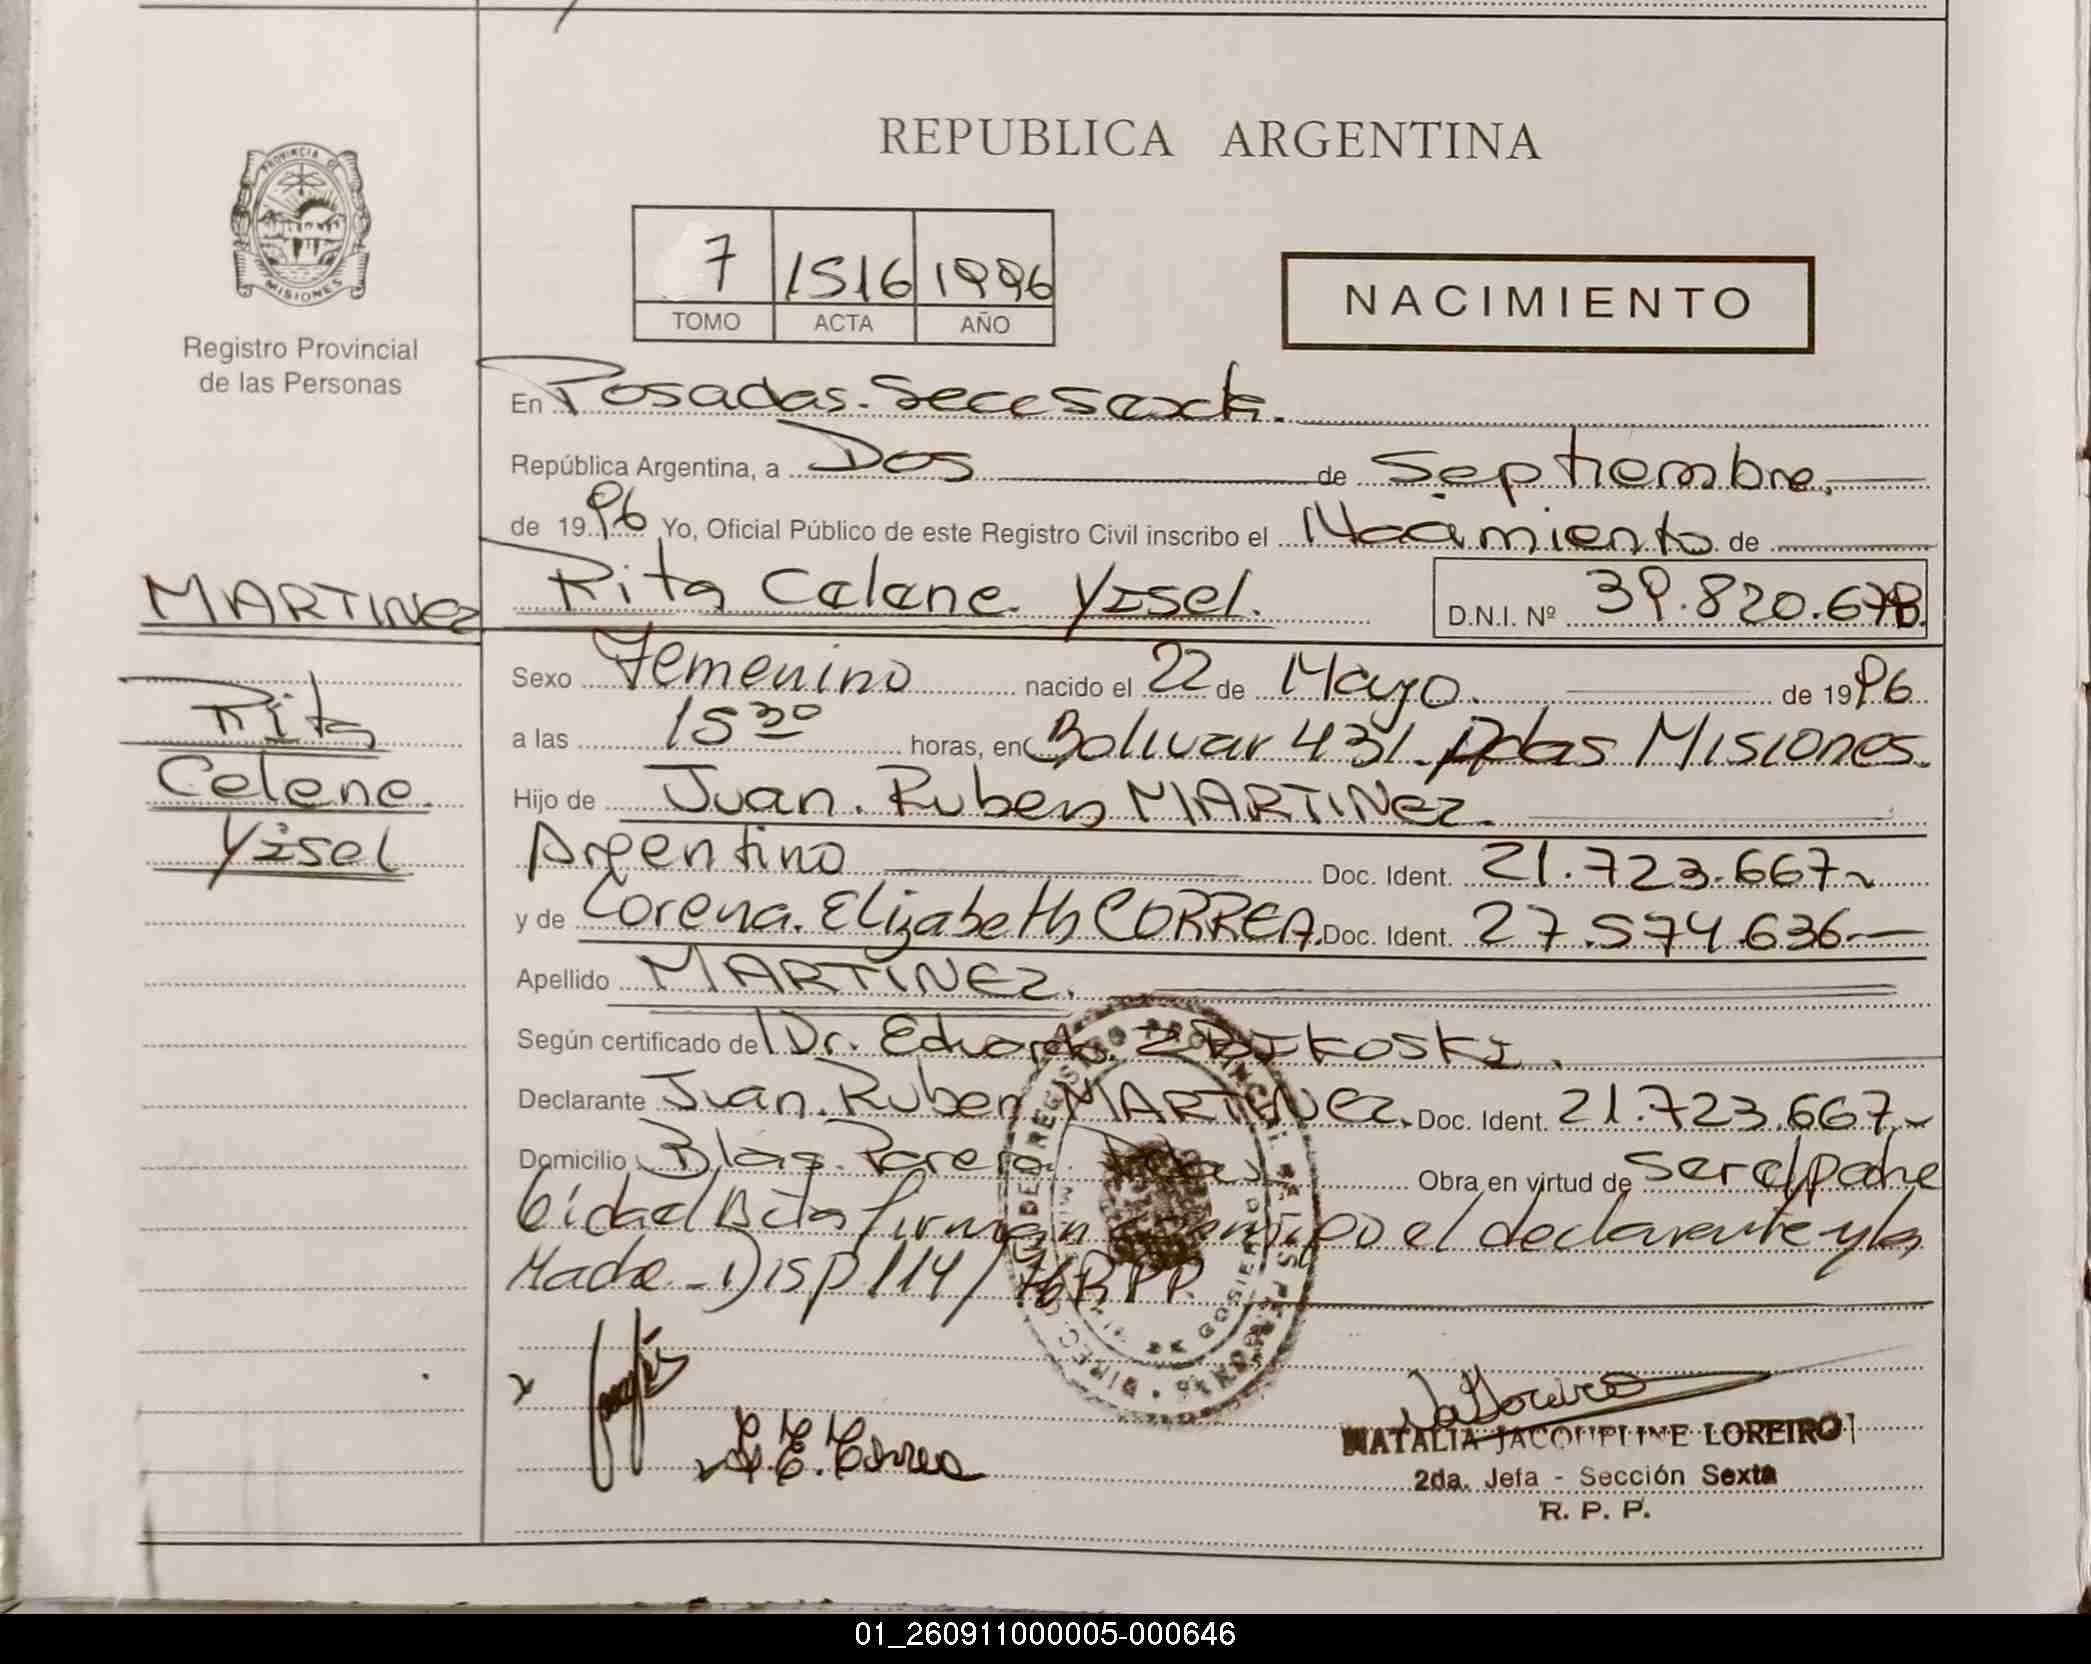 REPUBLICA ARGENTINA
PROVINCIA DE
MISIONES
Registro Provincial
de las Personas
7 1516 1996
TOMO ACTA AÑO
NACIMIENTO
En Posadas. Secc Sexta.
República Argentina, a Dos de Septiembre.
de 1996 Yo, Oficial Público de este Registro Civil inscribo el Nacimiento de
MARTINEZ
Rita Celene Yisel. D.N.I. Nº 39.820.678.
Rita
Celene
Yisel
Sexo Femenino nacido el 22 de Mayo. de 1996
a las 15 30 horas, en Bolivar 431. Pdas Misiones.
Hijo de Juan. Ruben MARTINEZ.
Argentino Doc. Ident. 21.723.667
y de Lorena. Elizabeth CORREA. Doc. Ident. 27.574.636
Apellido MARTINEZ.
Según certificado de Dr. Eduardo
Declarante Juan. Ruben MARTINEZ. Doc. Ident. 21.723.667
Domicilio Blas. Parera. Obra en virtud de ser el padre
firman el declarante y la
Madre - Disp 114/ RPP.
L. E. Correa
NATALIA JACQUELINE LOREIRO
2da. Jefa - Sección Sexta
R. P. P.
01_260911000005-000646